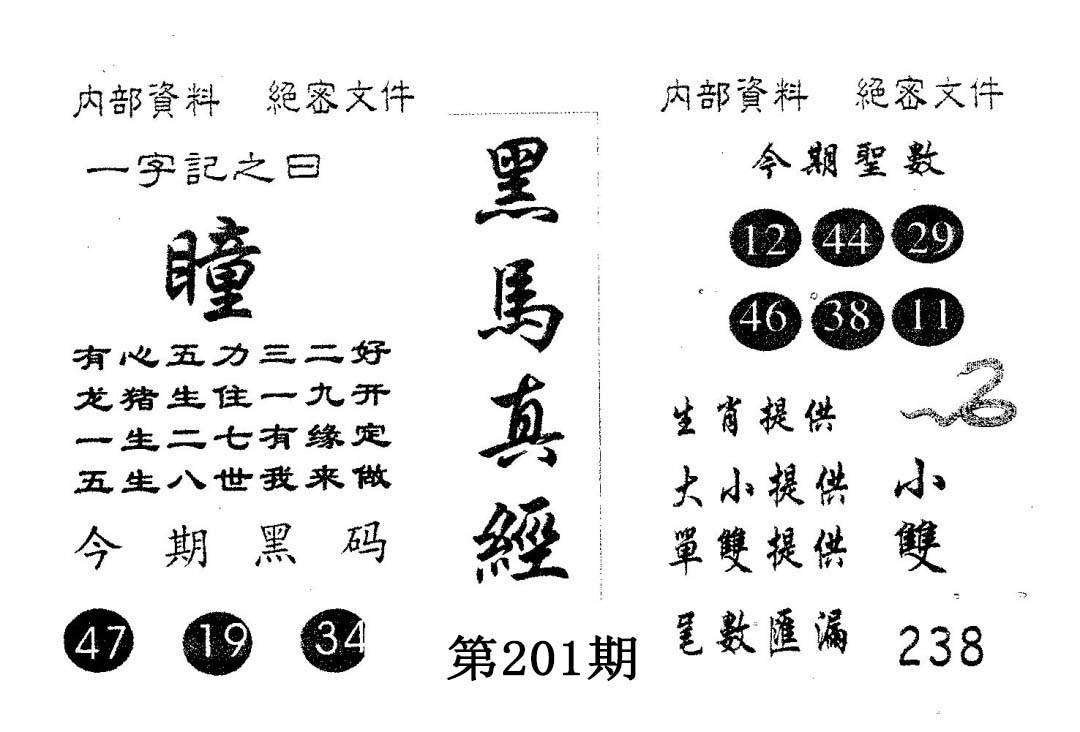 内部資料 絕密文件
一字記之曰
瞳
有心五力三二好
龙猪生住一九开
一生二七有缘定
五生八世我来做
今期黑码
47 19 34
黑馬真經
第201期
内部資料 絕密文件
今期聖數
12 44 29
46 38 11
生肖提供
大小提供 小
單雙提供 雙
尾數匯漏 238